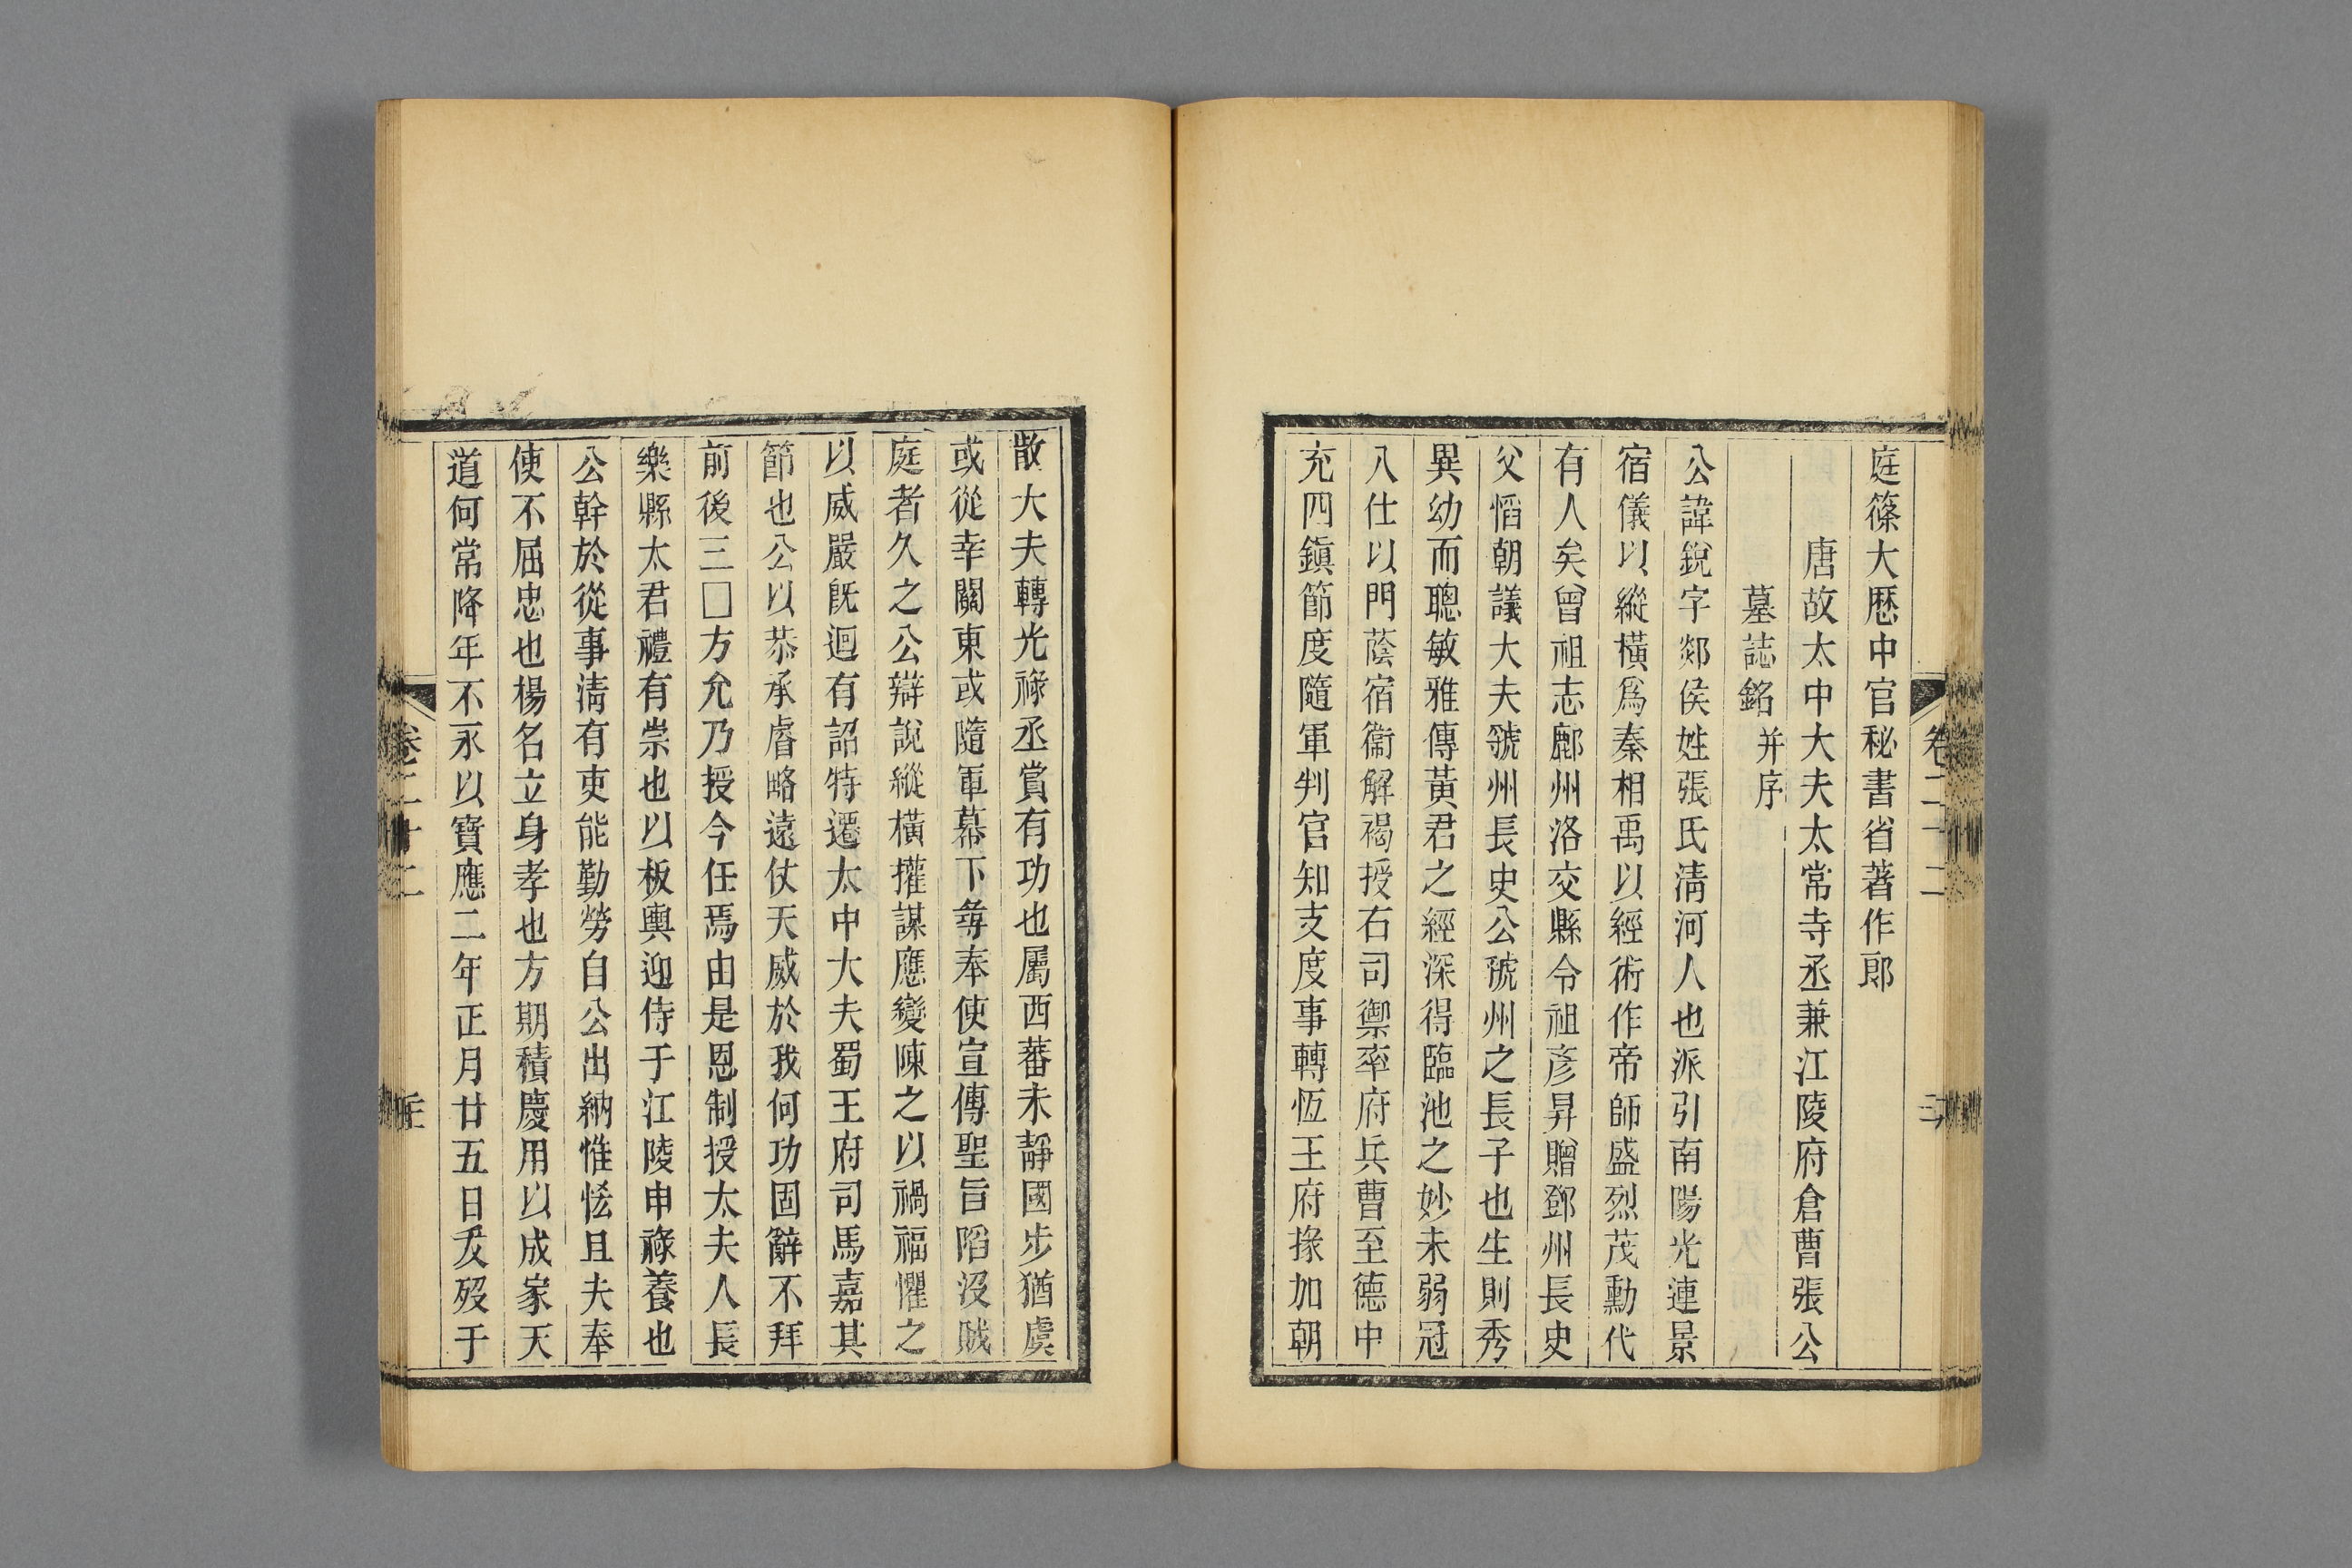 卷二十二
庭篠大歷中官秘書省著作郎
唐故太中大夫太常寺丞兼江陵府倉曹張公
墓誌銘并序
公諱銳字郯侯姓張氏淸河人也派引南陽光連景
宿儀以縱橫爲秦相禹以經術作帝師盛烈茂勳代
有人矣曾祖志鄜州洛交縣令祖彥昇贈鄧州長史
父慆朝議大夫虢州長史公虢州之長子也生則秀
異幼而聰敏雅傳黃君之經深得臨池之妙未弱冠
入仕以門蔭宿衞解褐授右司禦率府兵曹至德中
充四鎭節度隨軍判官知支度事轉恆王府掾加朝
散大夫轉光祿丞賞有功也屬西蕃未靜國步猶虞
或從幸關東或隨軍幕下尋奉使宣傳聖旨陷沒賊
庭者久之公辯說縱橫攉謀應變陳之以禍福懼之
以威嚴旣迴有詔特遷太中大夫蜀王府司馬嘉其
節也公以恭承睿略遠仗天威於我何功固辭不拜
前後三□方允乃授今任焉由是恩制授太夫人長
樂縣太君禮有崇也以板輿迎侍于江陵申祿養也
公幹於從事淸有吏能勤勞自公出納惟恡且夫奉
使不屈忠也楊名立身孝也方期積慶用以成家天
道何常降年不永以寶應二年正月廿五日友歿于
卷二十二